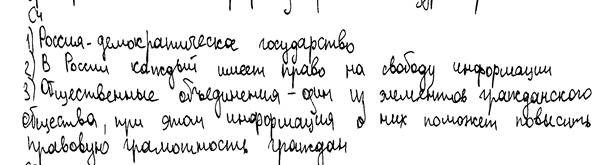 С4
1) Россия - демократическое государство
2) В России каждый имеет право на свободу информации
3) Общественные объединения - один из элементов гражданского
общества, при этом информация о них поможет повысить
правовую грамотность граждан